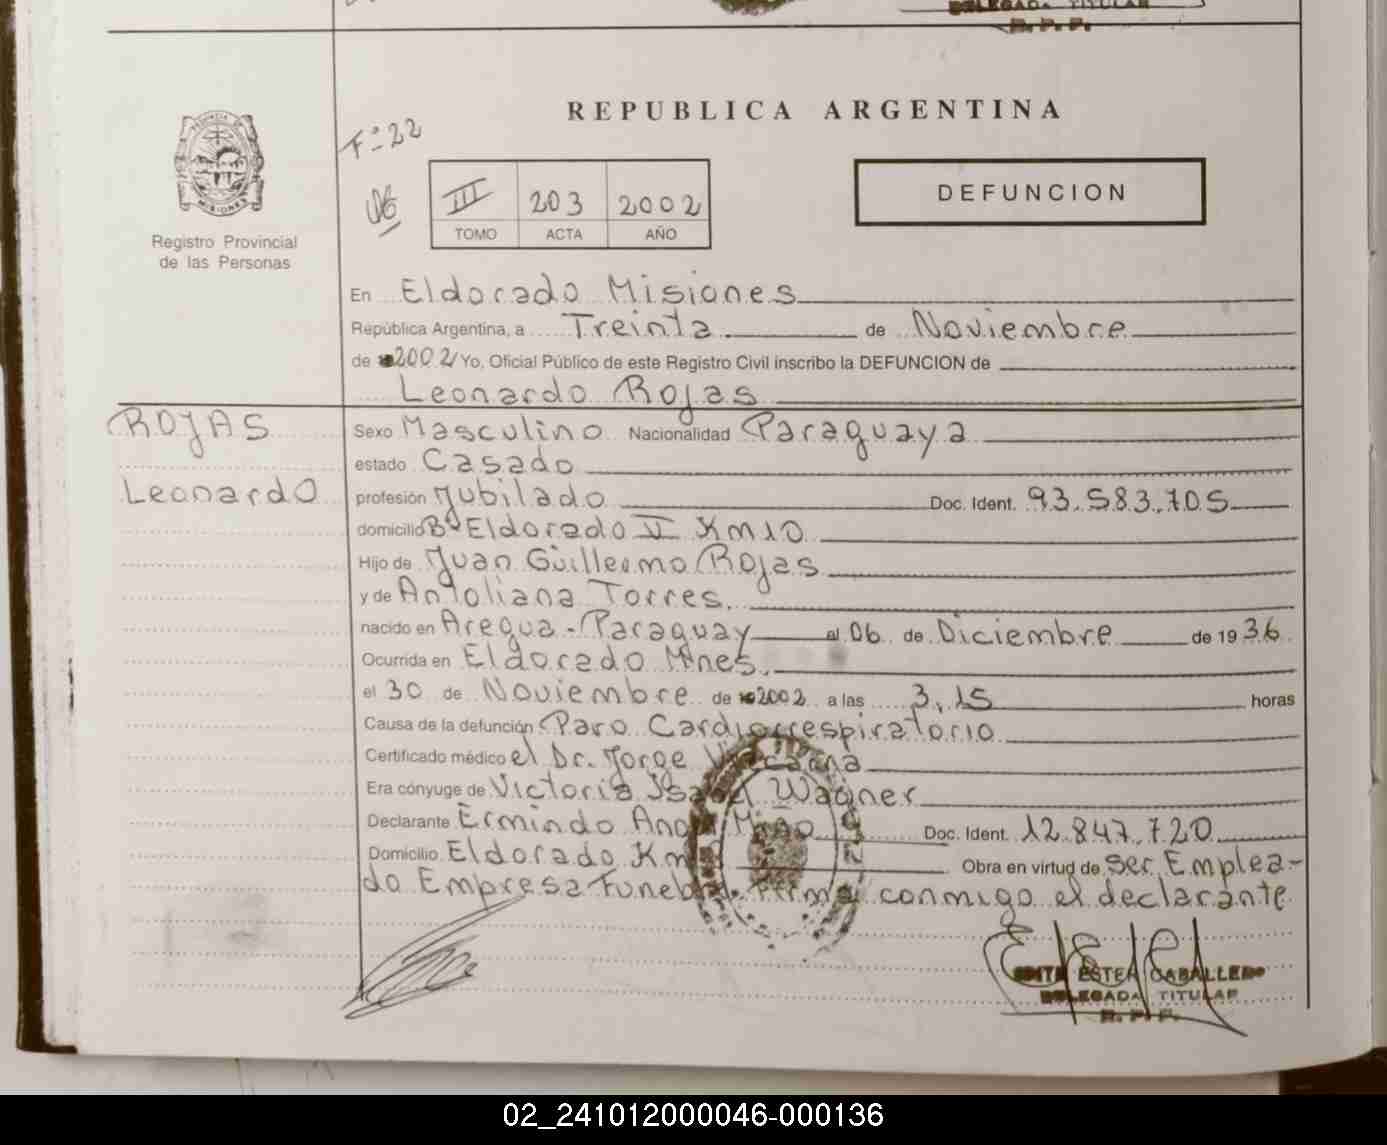 DELEGADA TITULAR
R. P. P.
REPUBLICA ARGENTINA
Fº 22
III 203 2002
TOMO ACTA AÑO
DEFUNCION
PROVINCIA DE
MISIONES
Registro Provincial
de las Personas
En Eldorado Misiones
República Argentina, a Treinta de Noviembre
de 2002 Yo, Oficial Público de este Registro Civil inscribo la DEFUNCION de
Leonardo Rojas
ROJAS
Leonardo
Sexo Masculino Nacionalidad Paraguaya
estado Casado
profesión Jubilado Doc. Ident. 93.583.705
domicilio Bº Eldorado V Km 10
Hijo de Juan Guillermo Rojas
y de Antoliana Torres.
nacido en Aregua - Paraguay el 06 de Diciembre de 1936
Ocurrida en Eldorado Mnes.
el 30 de Noviembre de 2002 a las 3,15 horas
Causa de la defunción Paro Cardiorrespiratorio
Certificado médico el Dr. Jorge
Era cónyuge de Victoria Isabel Wagner
Declarante Ermindo Doc. Ident. 12.847.720
Domicilio Eldorado Km Obra en virtud de Ser Emplea-
do Empresa Funebre. Firma conmigo el declarante
EDITH ESTER CABALLERO
DELEGADA TITULAR
R. P. P.
02_241012000046-000136